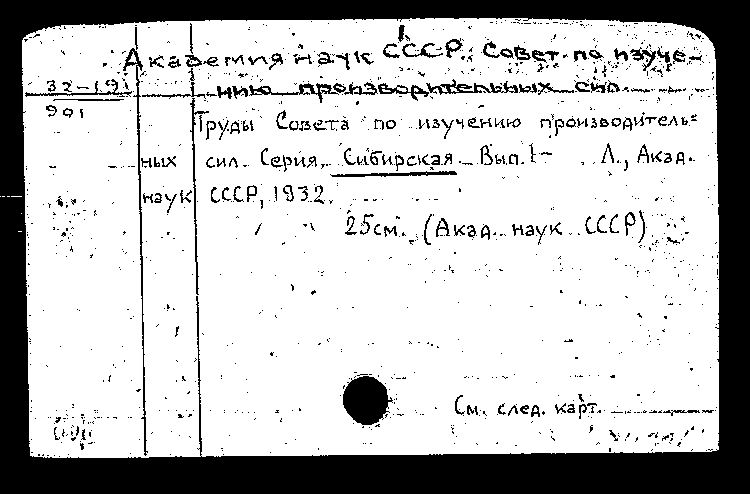 Академия наук СССР. Совет по изуче-
32-191
нию производительных сил.
901
Труды Совета по изучению производитель=
ных сил. Серия, Сибирская Вып. 1- Л., Акад.
наук СССР, 1932.
25см. (Акад. наук СССР)
См. след. карт.